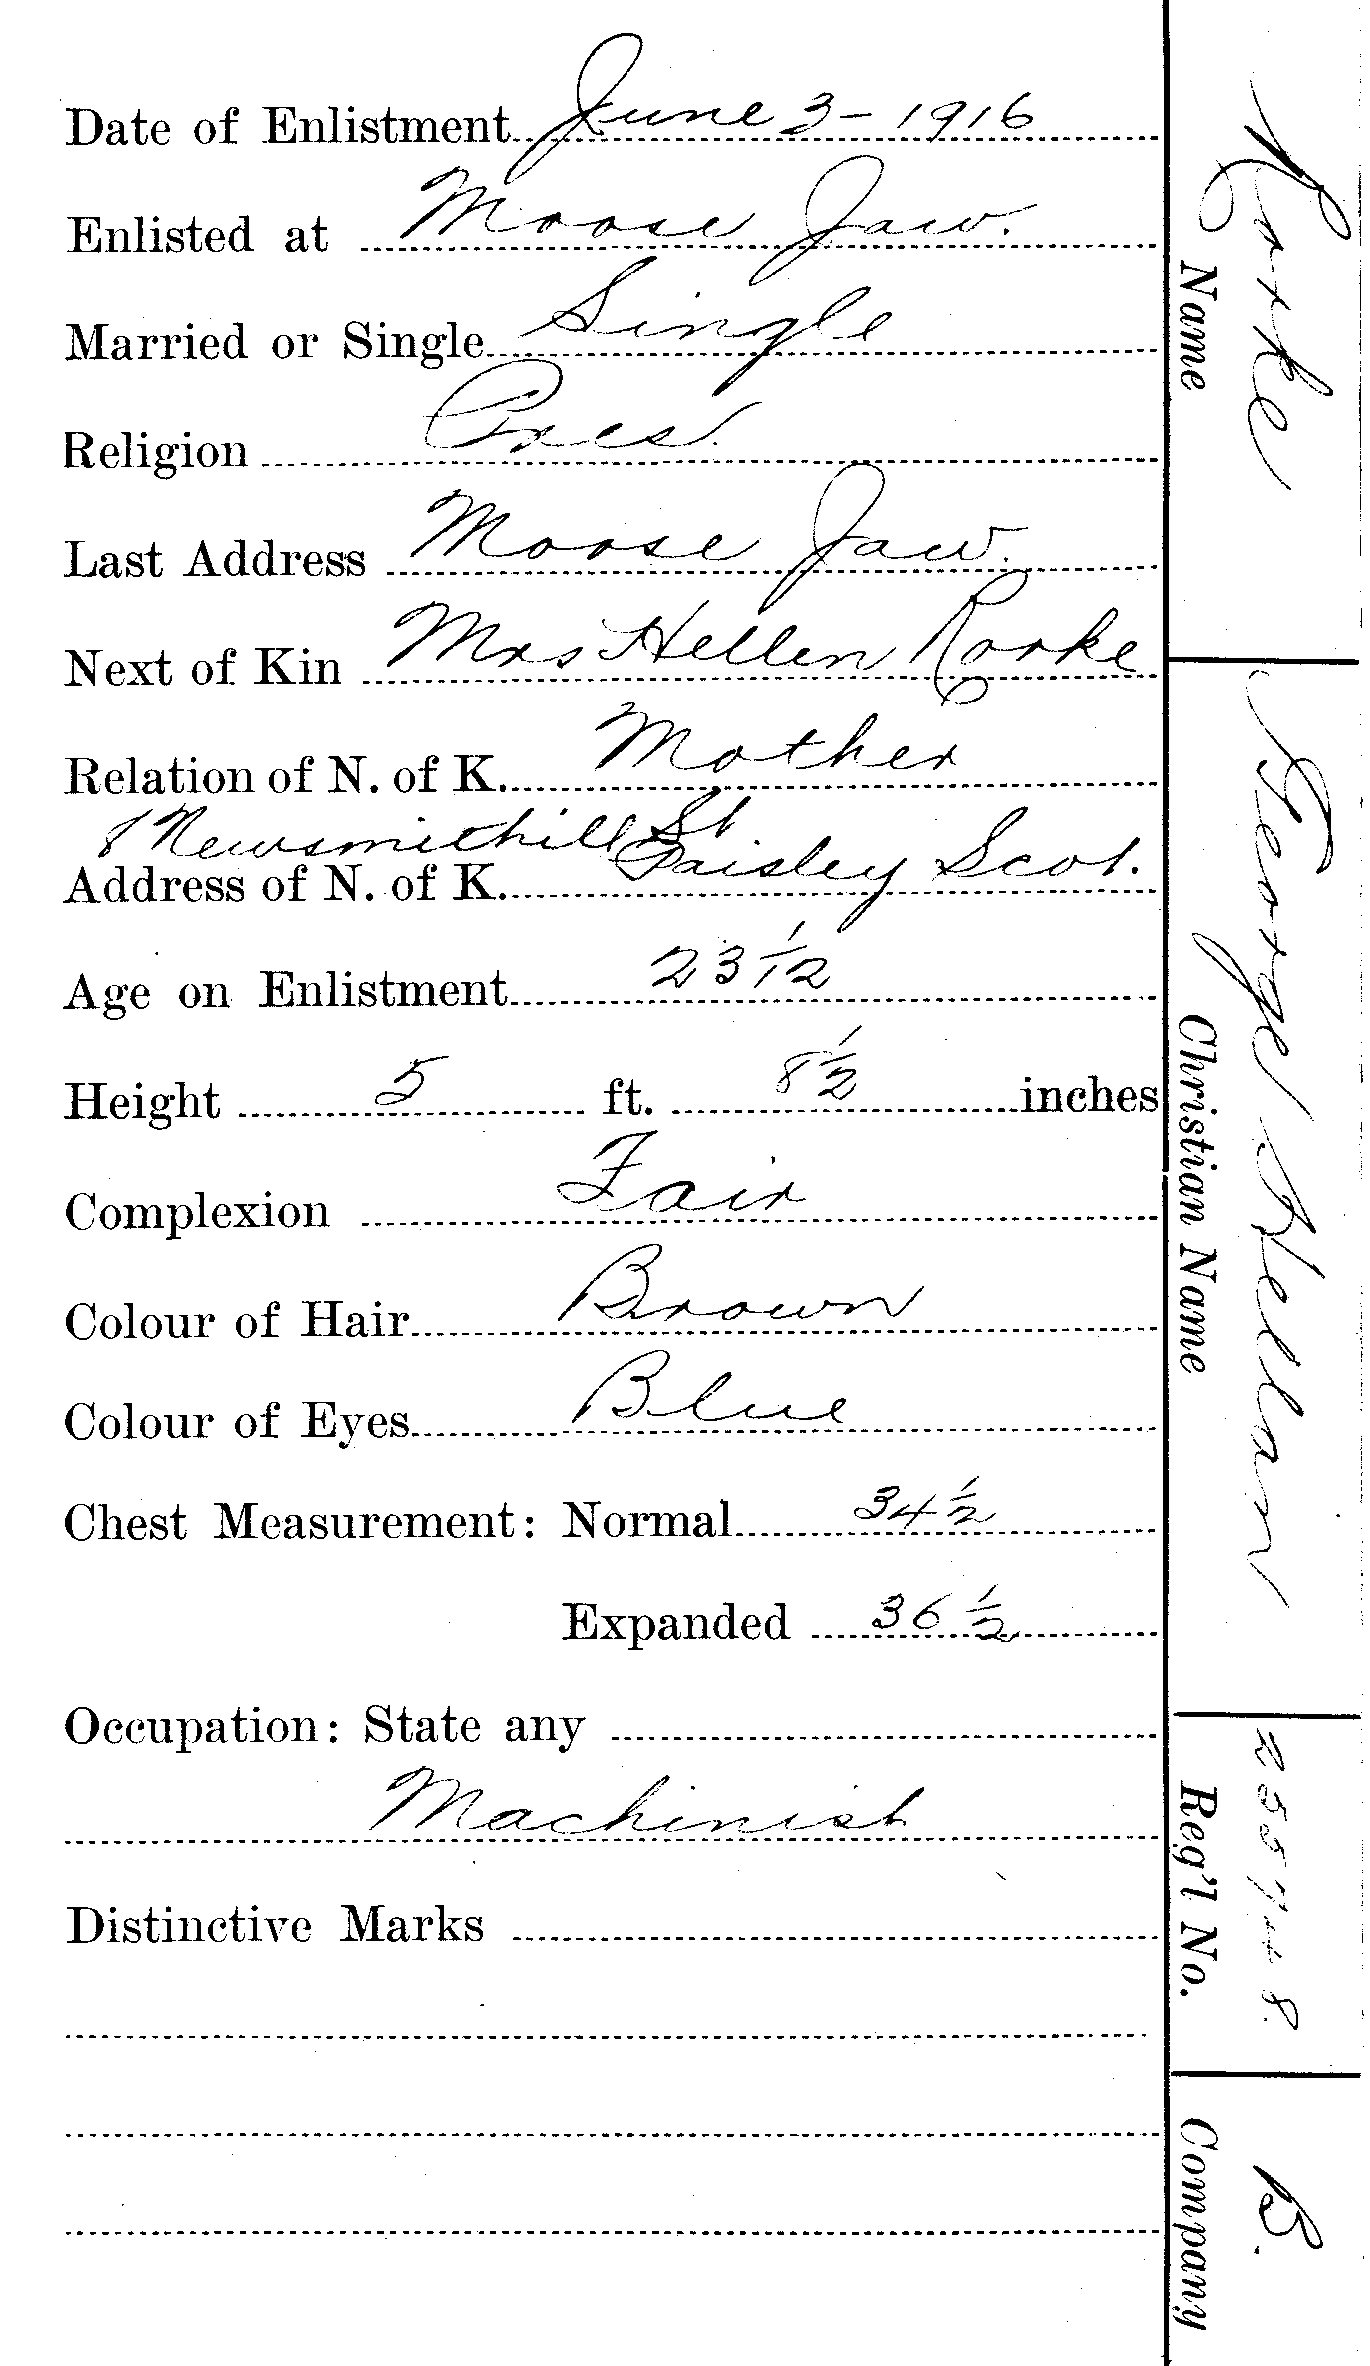 Date of Enlistment June 3 - 1916
Enlisted at Moose Jaw.
Married or Single Single
Religion Pres.
Last Address Moose Jaw.
Next of Kin Mrs Hellen Rorke
Relation of N. of K. Mother
8 Newsmithill St
Address of N. of K. Paisley Scot.
Age on Enlistment 23 1/12
Height 5 ft. 8 1/2 inches
Complexion Fair
Colour of Hair Brown
Colour of Eyes Blue
Chest Measurement: Normal 34 1/2
Expanded 36 1/2
Occupation: State any
Machinist
Distinctive Marks
Rorke
Name
George Kellan
Christian Name
Reg'l No.
B.
Company